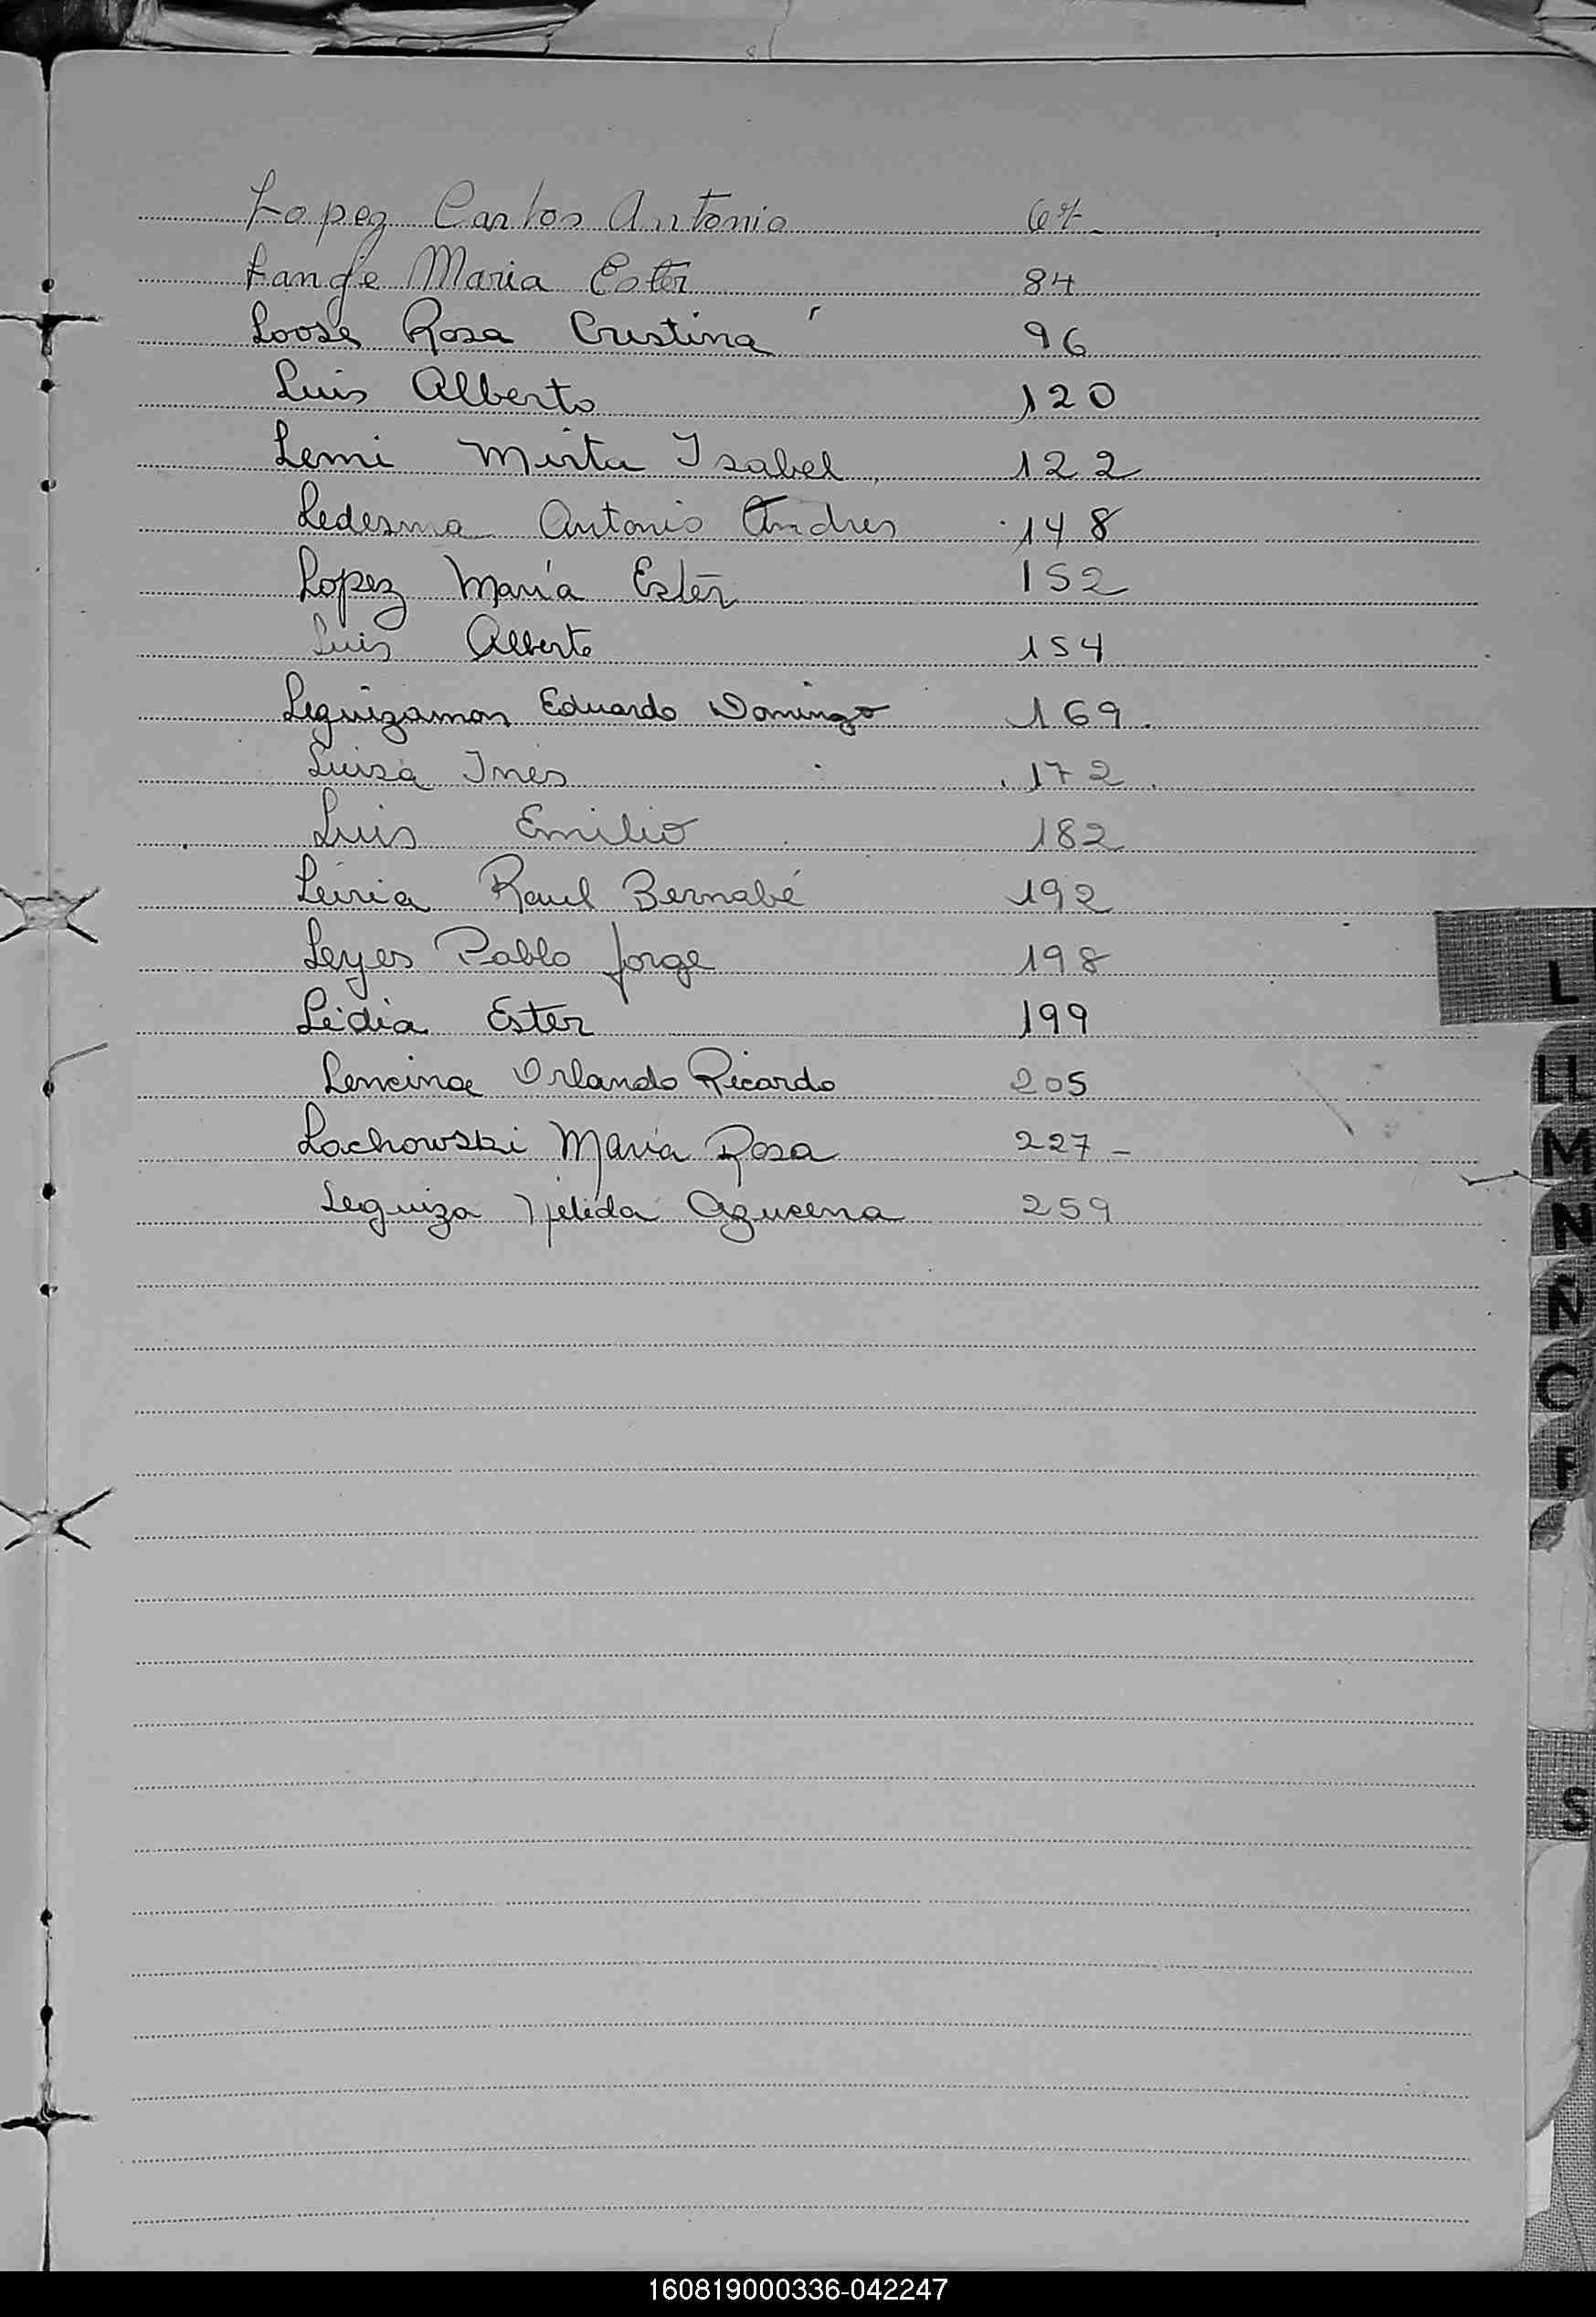 Lopez Carlos Antonio 67-
Lange Maria Ester 84
Loose Rosa Cristina 96
Luis Alberto 120
Lemi Mirta Isabel 122
Ledesma Antonio Andres 148
Lopez María Ester 152
Luis Alberto 154
Leguizamon Eduardo Domingo 169.
Luisa Inés 172
Luis Emilio 182
Leiria Raul Bernabé 192
Leyes Pablo Jorge 198
Lidia Ester 199
Lencina Orlando Ricardo 205
Lachowski María Rosa 227-
Leguiza Azucena 259
L
LL
M
N
N
O
S
160819000336-042247